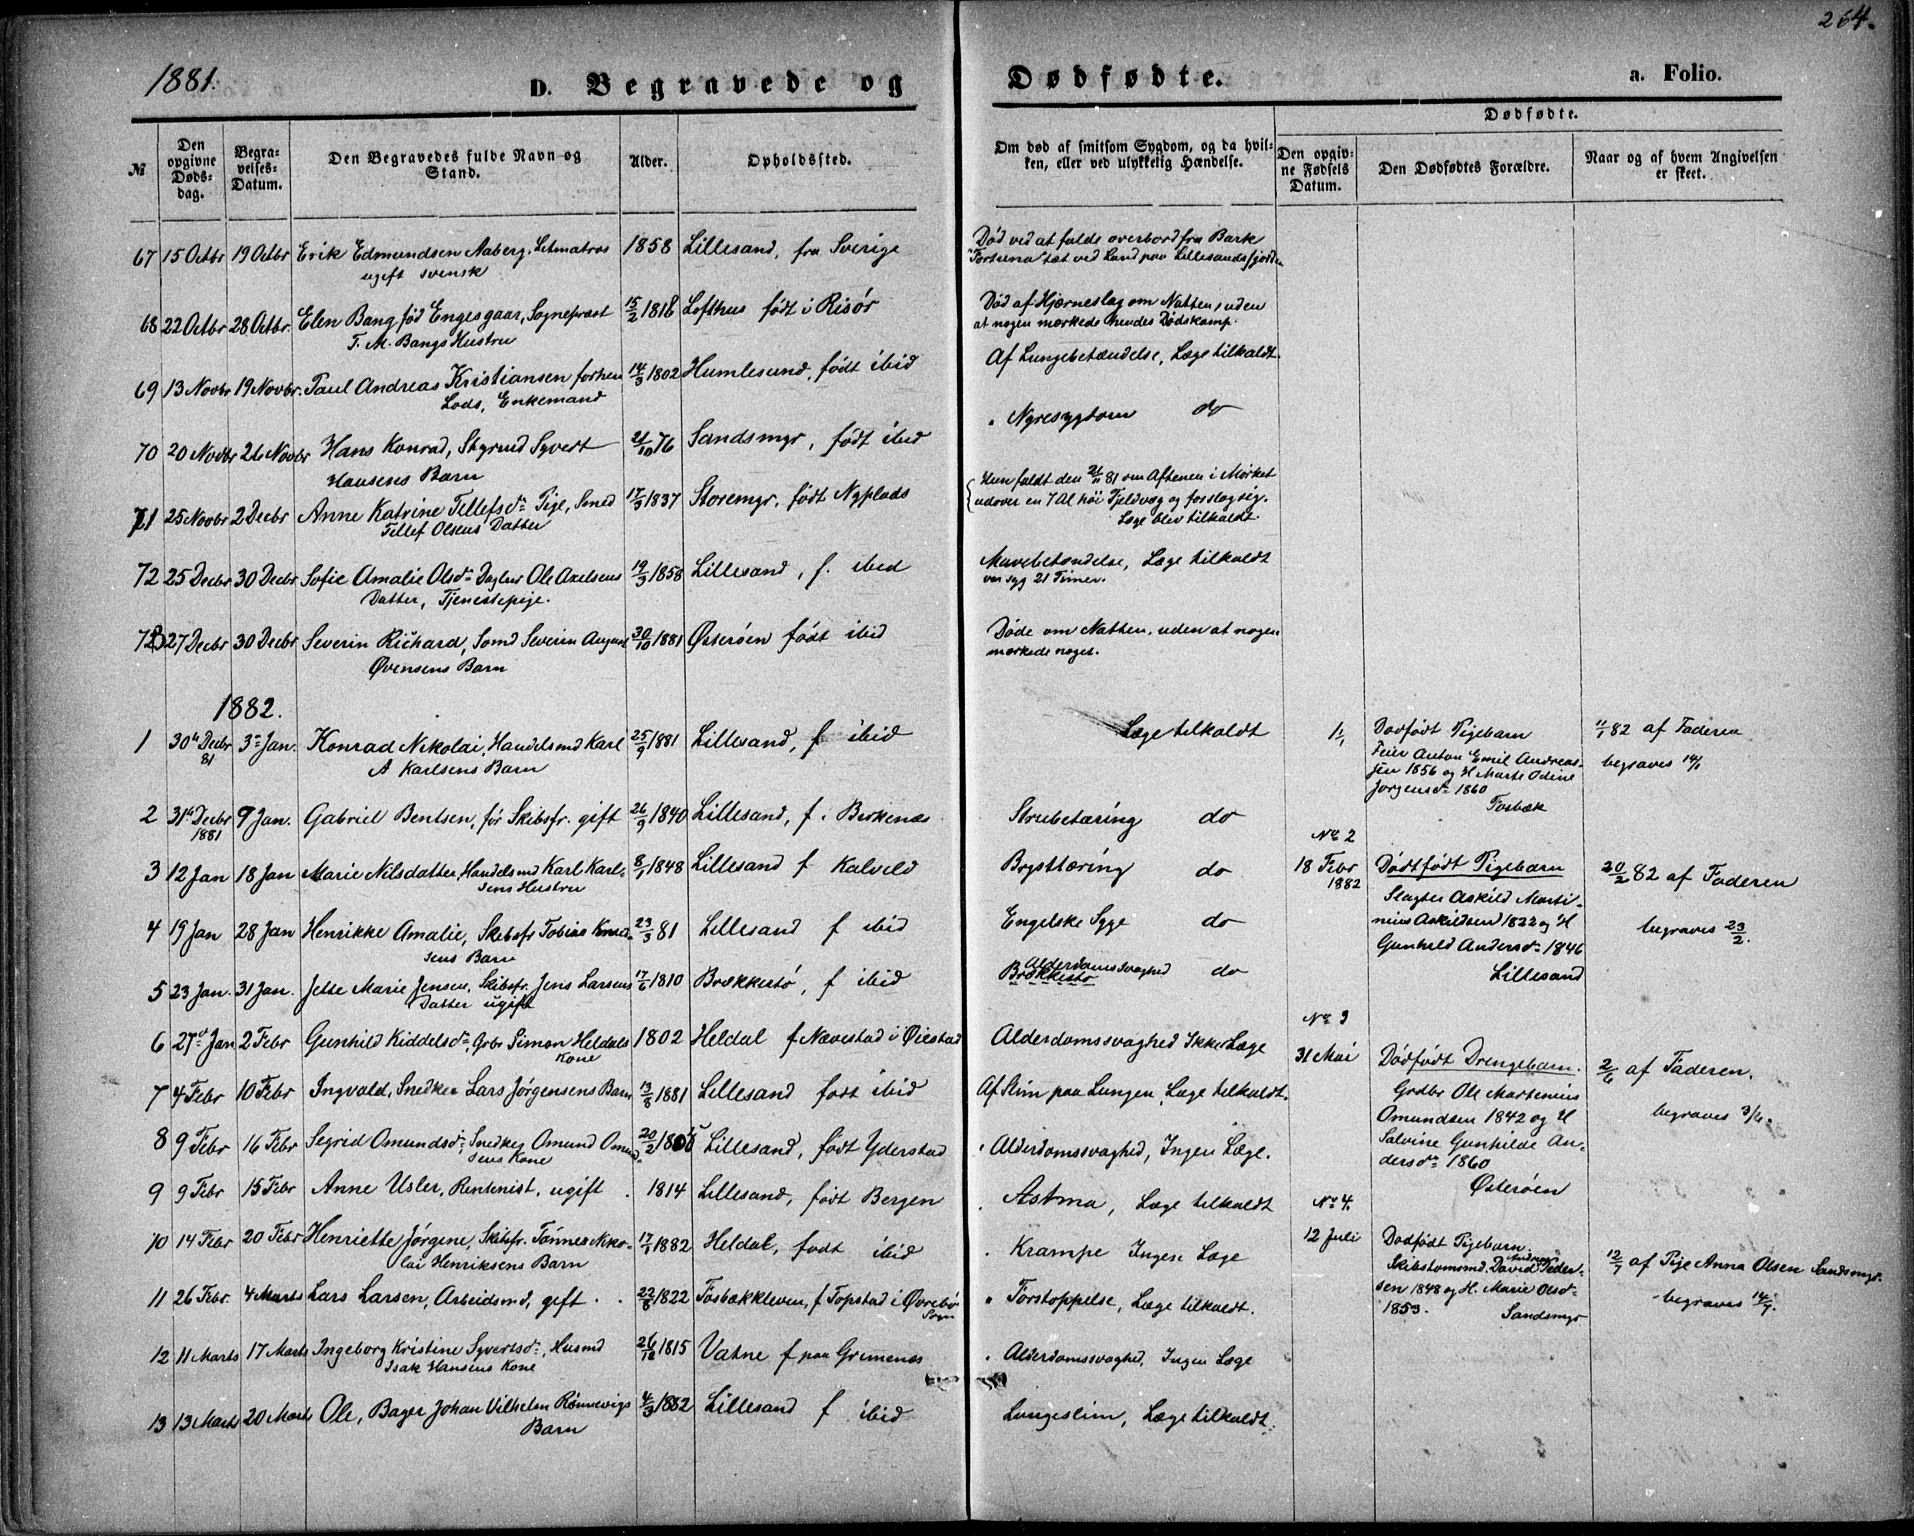 264.
1881.
D. Begravede og Dødfødte.
a. Folio.
№
Den opgivne Døds-dag.
Begra-velses-Datum.
Den Begravedes fulde Navn og Stand.
Alder.
Opholdssted.
Om død af smitsom Sygdom, og da hvil-
ken, eller ved ulykkelig Hændelse.
Dødfødte.
Den opgiv-ne Fødsels Datum.
Den Dødfødtes Forældre.
Naar og af hvem Angivelsen er skeet.
67 15 Octbr 19 Octbr Erik Edmundsen Aaberg, Letmatros 1858 Lillesand, fra Sverige
ugift svensk
Død ved at falde overbord fra Bark
"Fortuna" tæt ved Land paa Lillesandsfjorden
68 22 Octbr 28 Octbr. Elen Bang fød Engesgaar, Sognepræst 15/2 1818 Lofthus født i Risör
T. M. Bangs Hustru
Død af Hjærneslag om Natten, uden
at nogen mærkede hendes Dødskamp.
69 13 Novbr 19 Novbr. Paul Andreas Kristiansen forhen 14/3 1802 Humlesund, født ibid
Lods, Enkemand
Af Lungebetændelse, Læge tilkaldt.
70 20 Novbr 26 Novbr Hans Konrad, Skgrmd Syvert 21/10 76 Sandsmyr, født ibid
Hansens Barn
" Nyresygdom do
71 25 Novbr 2 Decbr Anne Katrine Tellefsdr Pige, Smed 17/3 1837 Storemyr, født Nyplads
Tellef Olsens Datter
Hun faldt den 21/11 81 om Aftenen i Mörket
udover en 7 Al höi Fjeldvæg og forslog sig.
Læge blev tilkaldt.
72 25 Decbr 30 Decbr Sofie Amalie Olsdr Dagløn Ole Axelsens 19/3 1858 Lillesand, f. ibid
Datter, Tjenestepige.
Mavebetændelse, Læge tilkaldt
var syg 21 Timer.
73 27 Decbr 30 Decbr Severin Richard, Sømd Severin August 30/10 1881 Østerøen født ibid
Øvensens Barn
Døde om Natten, uden at nogen
mærkede noget.
1882.
1 30te Decbr 81 3die Jan. Konrad Nikolai, Handelsmd Karl 25/9 1881 Lillesand, f ibid
A Karlsens Barn
Læge tilkaldt
1/1 Dødfødt Pigebarn
Feier Anton Emil Andreas-
sen 1856 og H Marte Odine
Jorgensdr 1860
Fosbæk
11/1 82 af Faderen
begraves 14/1
2 31te Decbr 1881 9 Jan. Gabriel Bentsen, för Skibsfr. gift 26/9 1840 Lillesand, f. Birkenæs
Strubetæring do
3 12 Jan 18 Jan Marie Nilsdatter, Handelsmd Karl Karl- 8/1 1848 Lillesand f Kalveld
sens Hustru
Brysttæring do
No 2
18 Febr 1882 Dödfødt Pigebarn
Slagter Askild Marti-
nius Askildsen 1822 og H
Gunhild Andersdr 1846
Lillesand
20/2 82 af Faderen
begraves 23/2.
4 19 Jan 28 Jan Henrikke Amalie, Skibsfr Tobias Knud- 23/3 81 Lillesand f ibid
sens Barn
Engelske Syge do
5 23 Jan. 31 Jan. Jette Marie Jensen, Skibsfr. Jens Larsens 17/6 1810 Brækkestö, f ibid
Datter ugift
Alderdomssvaghed
Brækkestö do
6 27de Jan 2 Febr Gunhild Kiddelsdr, Grbr Simon Heldals 1802 Heldal f Nævestad i Øiestad
Kone
Alderdomssvaghed Ikke Læge
No 3
31 Mai Dödfödt Drengebarn.
Grdbr Ole Martenius
Omundsen 1842 og H
Salvine Gunhilde An-
dersdr 1860
Østerøen
2/6 af Faderen.
begraves 3/6.
7 4 Febr 10 Febr Ingvald, Snedker Lars Jörgensens Barn 13/8 1881 Lillesand født ibid
Af Slim paa Lungen, Læge tilkaldt.
8 9 Febr 16 Febr Segrid Omundsdr, Snedker Omund Omund- 20/2 Lillesand, født Yderstad
sens Kone
" Alderdomssvaghed, Ingen Læge.
9 9 Febr 15 Febr Anne Usler, Rentenist, ugift . 1814 Lillesand, født Bergen
. Astma, Læge tilkaldt
10 14 Febr 20 Febr Henriette Jørgine, Skibsfr. Tönnes Niko- 17/1 1882 Heldal, født ibid
lai Henriksens Barn
. Krampe Ingen Læge
No 4.
12 Juli Dødfødt Pigebarn.
Skibstømmd. David Andreas Peder-
sen 1848 og H. Marie Olsdr
1853. Sandsmyr
12/7 af Pige Anna Olsen Sandsmyr.
begraves 14/7.
11 26 Febr. 4 Marts Lars Larsen, Arbeidsmd, gift . . 22/8 1822 Fosbækkleven, f Topstad i Øvrebö
Sogn
" Forstoppelse, Læge tilkaldt.
12 11 Marts 17 Marts Ingeborg Kristine Syvertsdr, Husmd 26/12 1815 Vatne f paa Grimenæs
Isak Hansens Kone
. Alderdomssvaghed, Ingen Læge
13 13 Marts 20 Marts Ole, Bager Johan Vilhelm Rönnevigs 4/3 1882 Lillesand f ibid
Barn
Lungeslim, Læge tilkaldt.